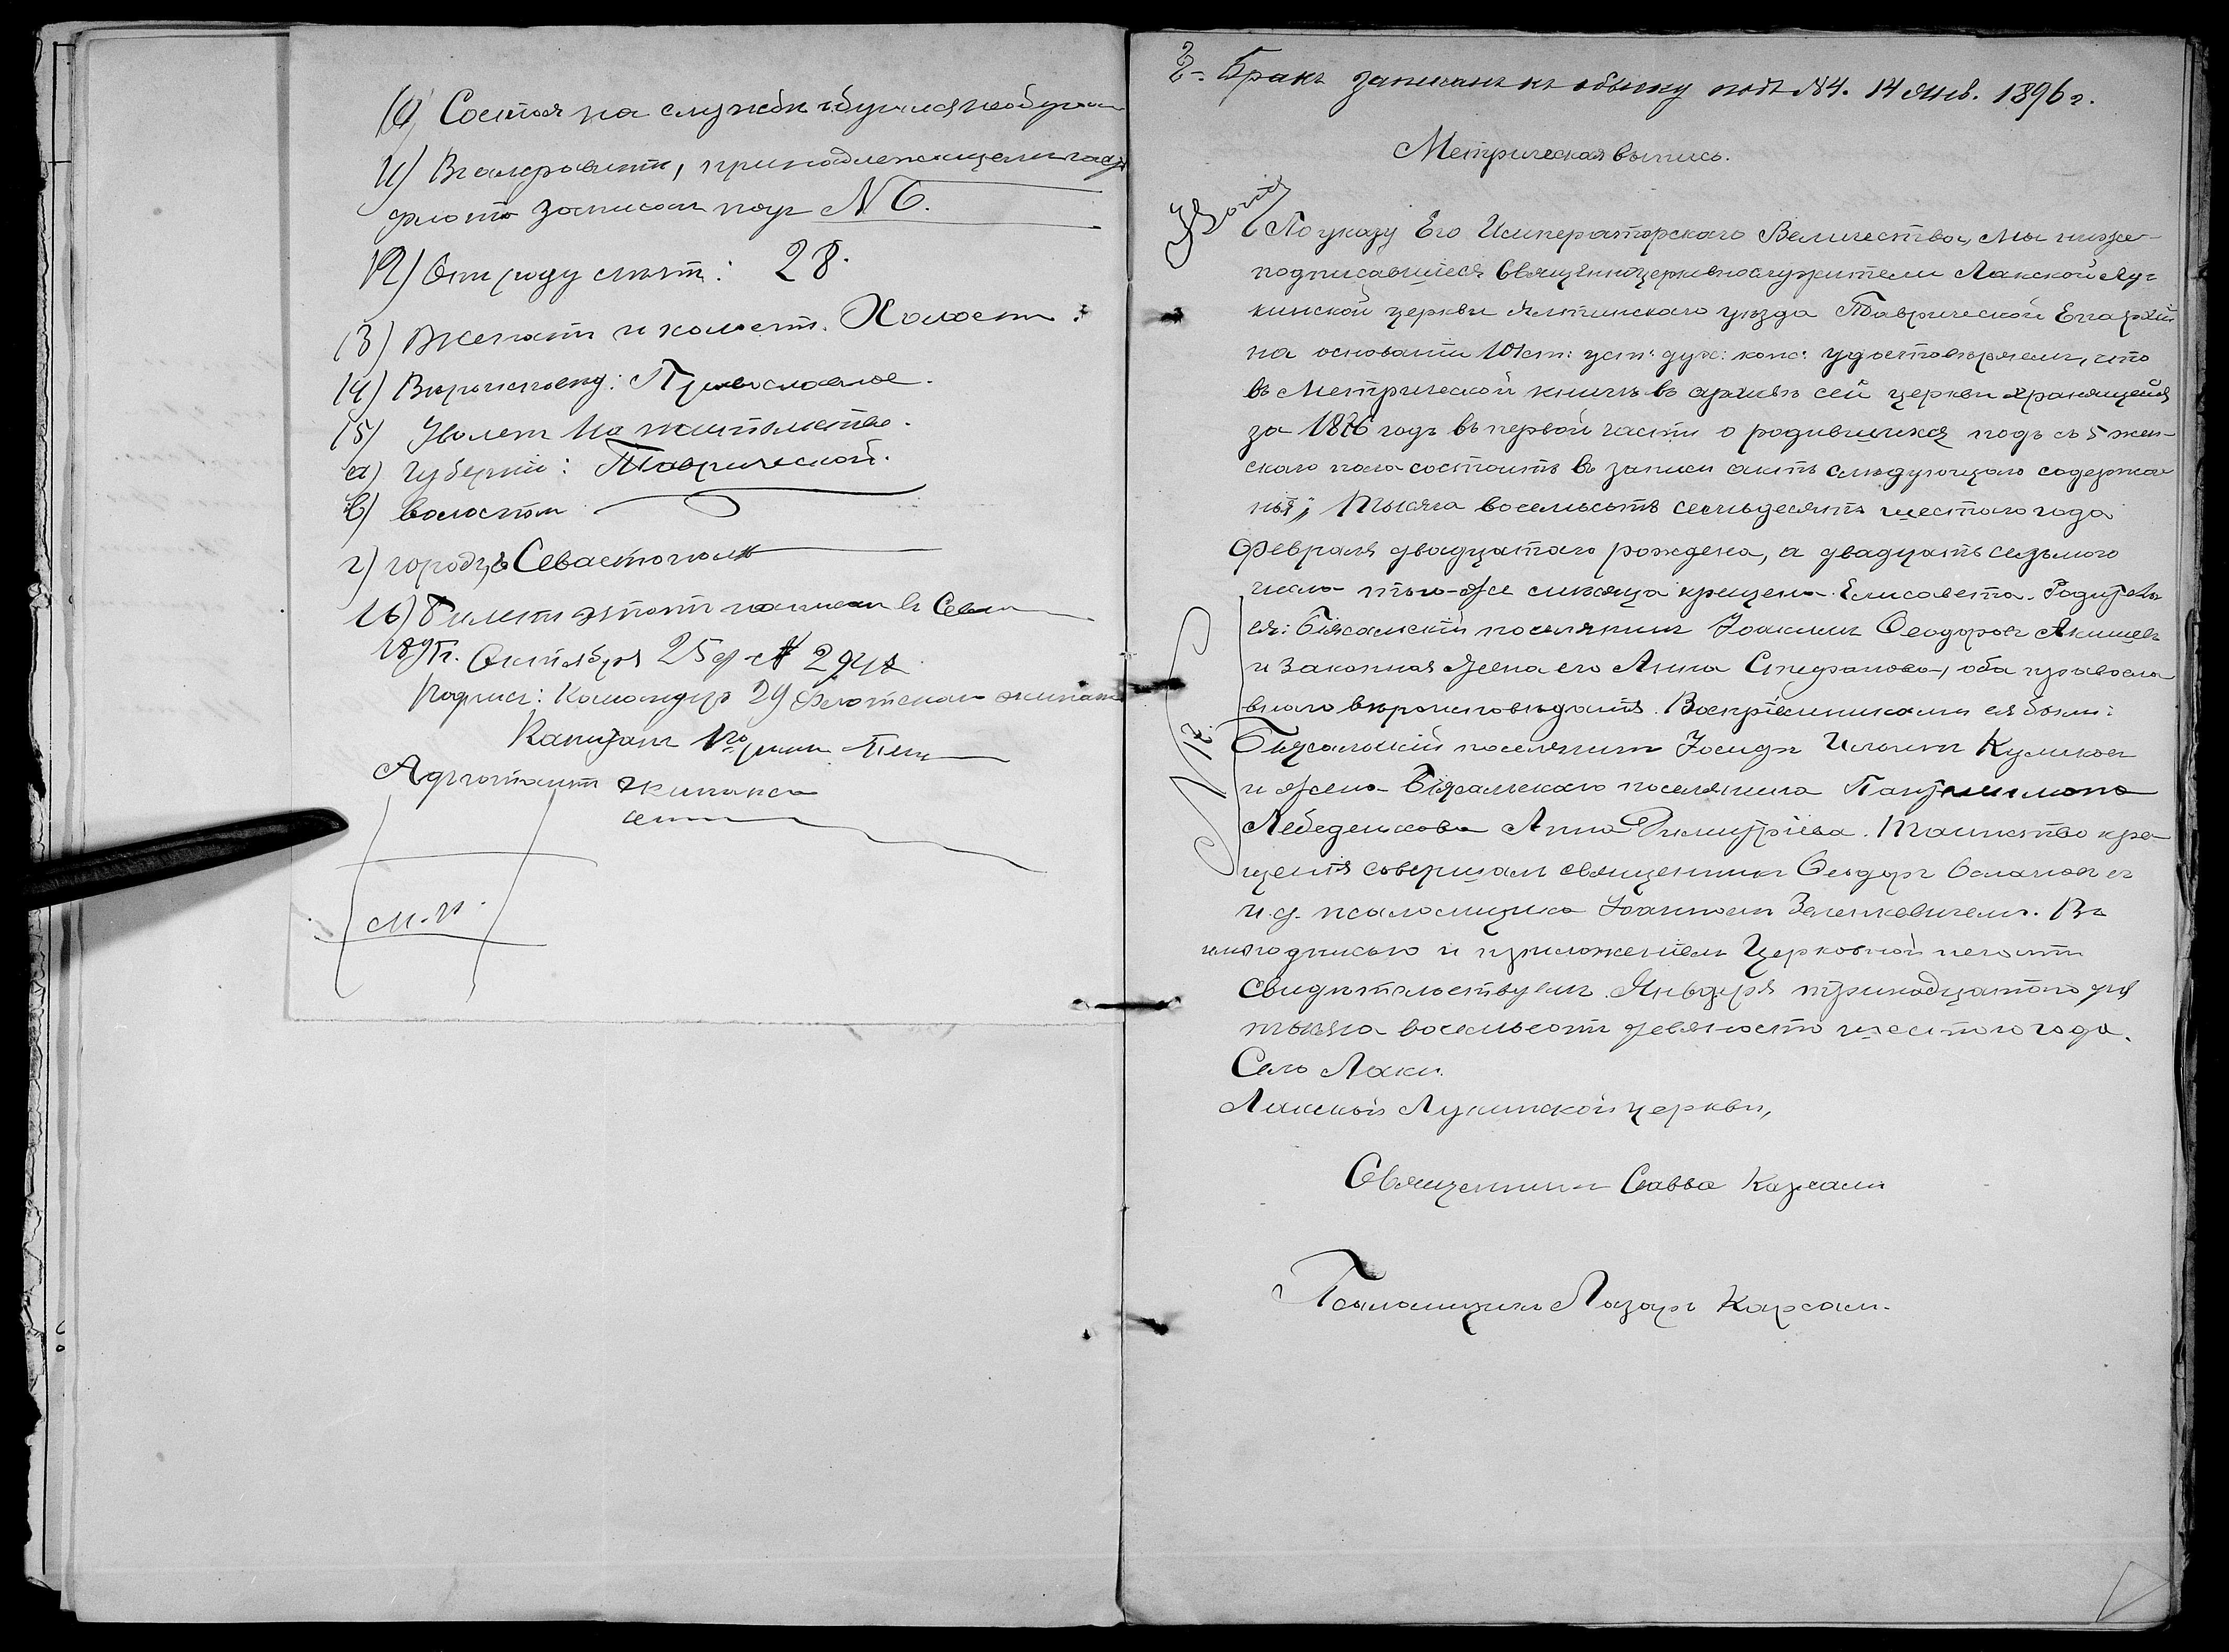 10) Состоя на службѣ обучился
11) Въ алфавитѣ, принадлежащемъ
флота записанъ подъ № 6.
12) Отъ роду лѣтъ: 28.
13) Женатъ и холостъ. Холостъ.
14) Вѣроисповѣд: Православное.
15) Уволенъ на жительство.
а) Губерніи: Таврической.
в) волости
г) городъ Севастополь
16) Билетъ этотъ въ
Октября 25 д. №
Подпись: Командиръ 29 Флотскаго экипажа
Капитанъ 1го ранга
Адъютантъ экипажа
М.П.
2. Бракъ записанъ къ обыску подъ №4. 14 янв. 1896 г.
Метрическая выпись.
По указу Его Императорскаго Величества, мы ниже-
подписавшіеся священноцерковнослужители Лакской Лу-
кинской церкви Ялтинскаго уѣзда Таврической Епархіи
на основаніи ст: уст: дух: конс: удостовѣряемъ, что
въ Метрической книгѣ въ архивѣ сей церкви хранящейся
за 1876 годъ въ первой части о родившихся подъ № 5 жен-
скаго пола состоитъ въ записи актъ слѣдующаго содержа-
нія: Тысяча восемьсотъ семьдесятъ шестого года
Февраля двадцатаго рождена, а двадцать седьмого
числа того-же мѣсяца крещена Елисавета. Родители
ея: Біясалскій поселянинъ Іоакимъ Ѳеодоровъ
и законная жена его Анна Стефанова, оба правосла
внаго вѣроисповѣданія. Воспріемниками ея были:
Біясалскій поселянинъ Іосифъ Куликовъ
и жена Біясалскаго поселянина Пантелеимона
Лебеденкова Анна Димитріева. Таинство кре-
щенія совершалъ священникъ Ѳеодоръ съ
и. д. псаломщика Іоанномъ Зеленкевичемъ. Въ
чемъ подписью и приложеніемъ Церковной печати
свидѣтельствуемъ. Января тринадцатаго дня
тысяча восемьсотъ девяносто шестого года.
Село Лаки.
Лакской Лукинской церкви,
Священникъ Савва
Псаломщикъ Лазарь